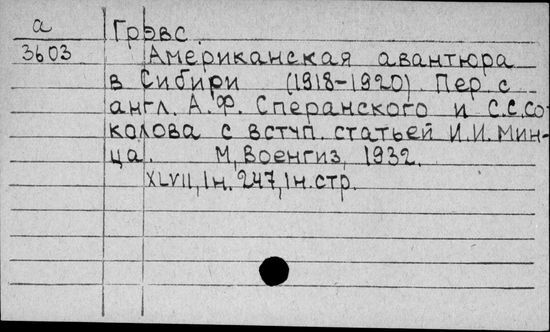 а
Грэвс.
3603
Американская авантюра
в Сибири (1918-1920). Пер с
англ. А.Ф. Сперанского и С.С.Со
колова с вступ. статьей И.И. Мин-
ца. М, Военгиз, 1932.
XLVII, Iн. 247, Iн.стр.